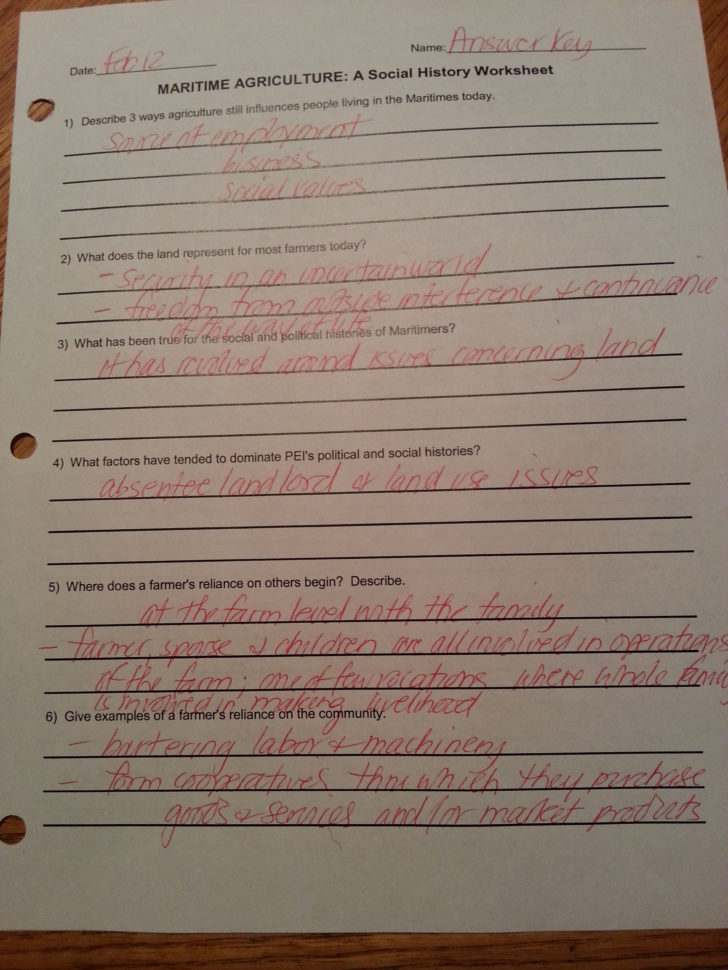 Name: Answer Key
Date: Feb 12
MARITIME AGRICULTURE: A Social History Worksheet
1) Describe 3 ways agriculture still influences people living in the Maritimes today.
source of employment
business
social values
2) What does the land represent for most farmers today?
- Security in an uncertain world
- freedom from outside interference & continuance
of the way of life
3) What has been true for the social and political histories of Maritimers?
it has revolved around issues concerning land
4) What factors have tended to dominate PEI's political and social histories?
absentee landlord & land use issues
5) Where does a farmer's reliance on others begin? Describe.
at the farm level with the family
- farmer, spouse & children are all involved in operations
of the farm; one of few vocations where whole family
is involved in making livelihood
6) Give examples of a farmer's reliance on the community.
- bartering labor & machinery
- form cooperatives thru which they purchase
goods & services and/or market products